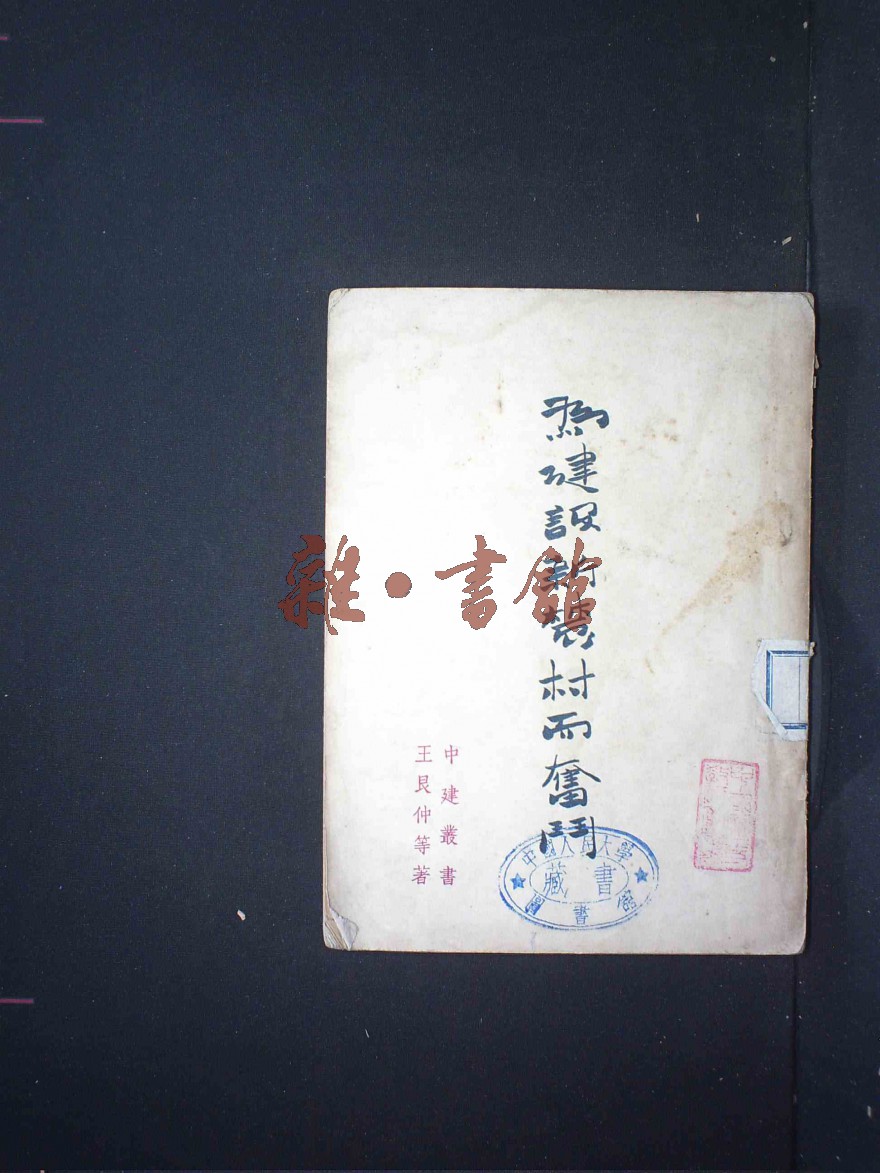 為建設新農村而奮鬥
中建叢書
王艮仲等著
中國人民大學
藏書
圖書館
雜·書館